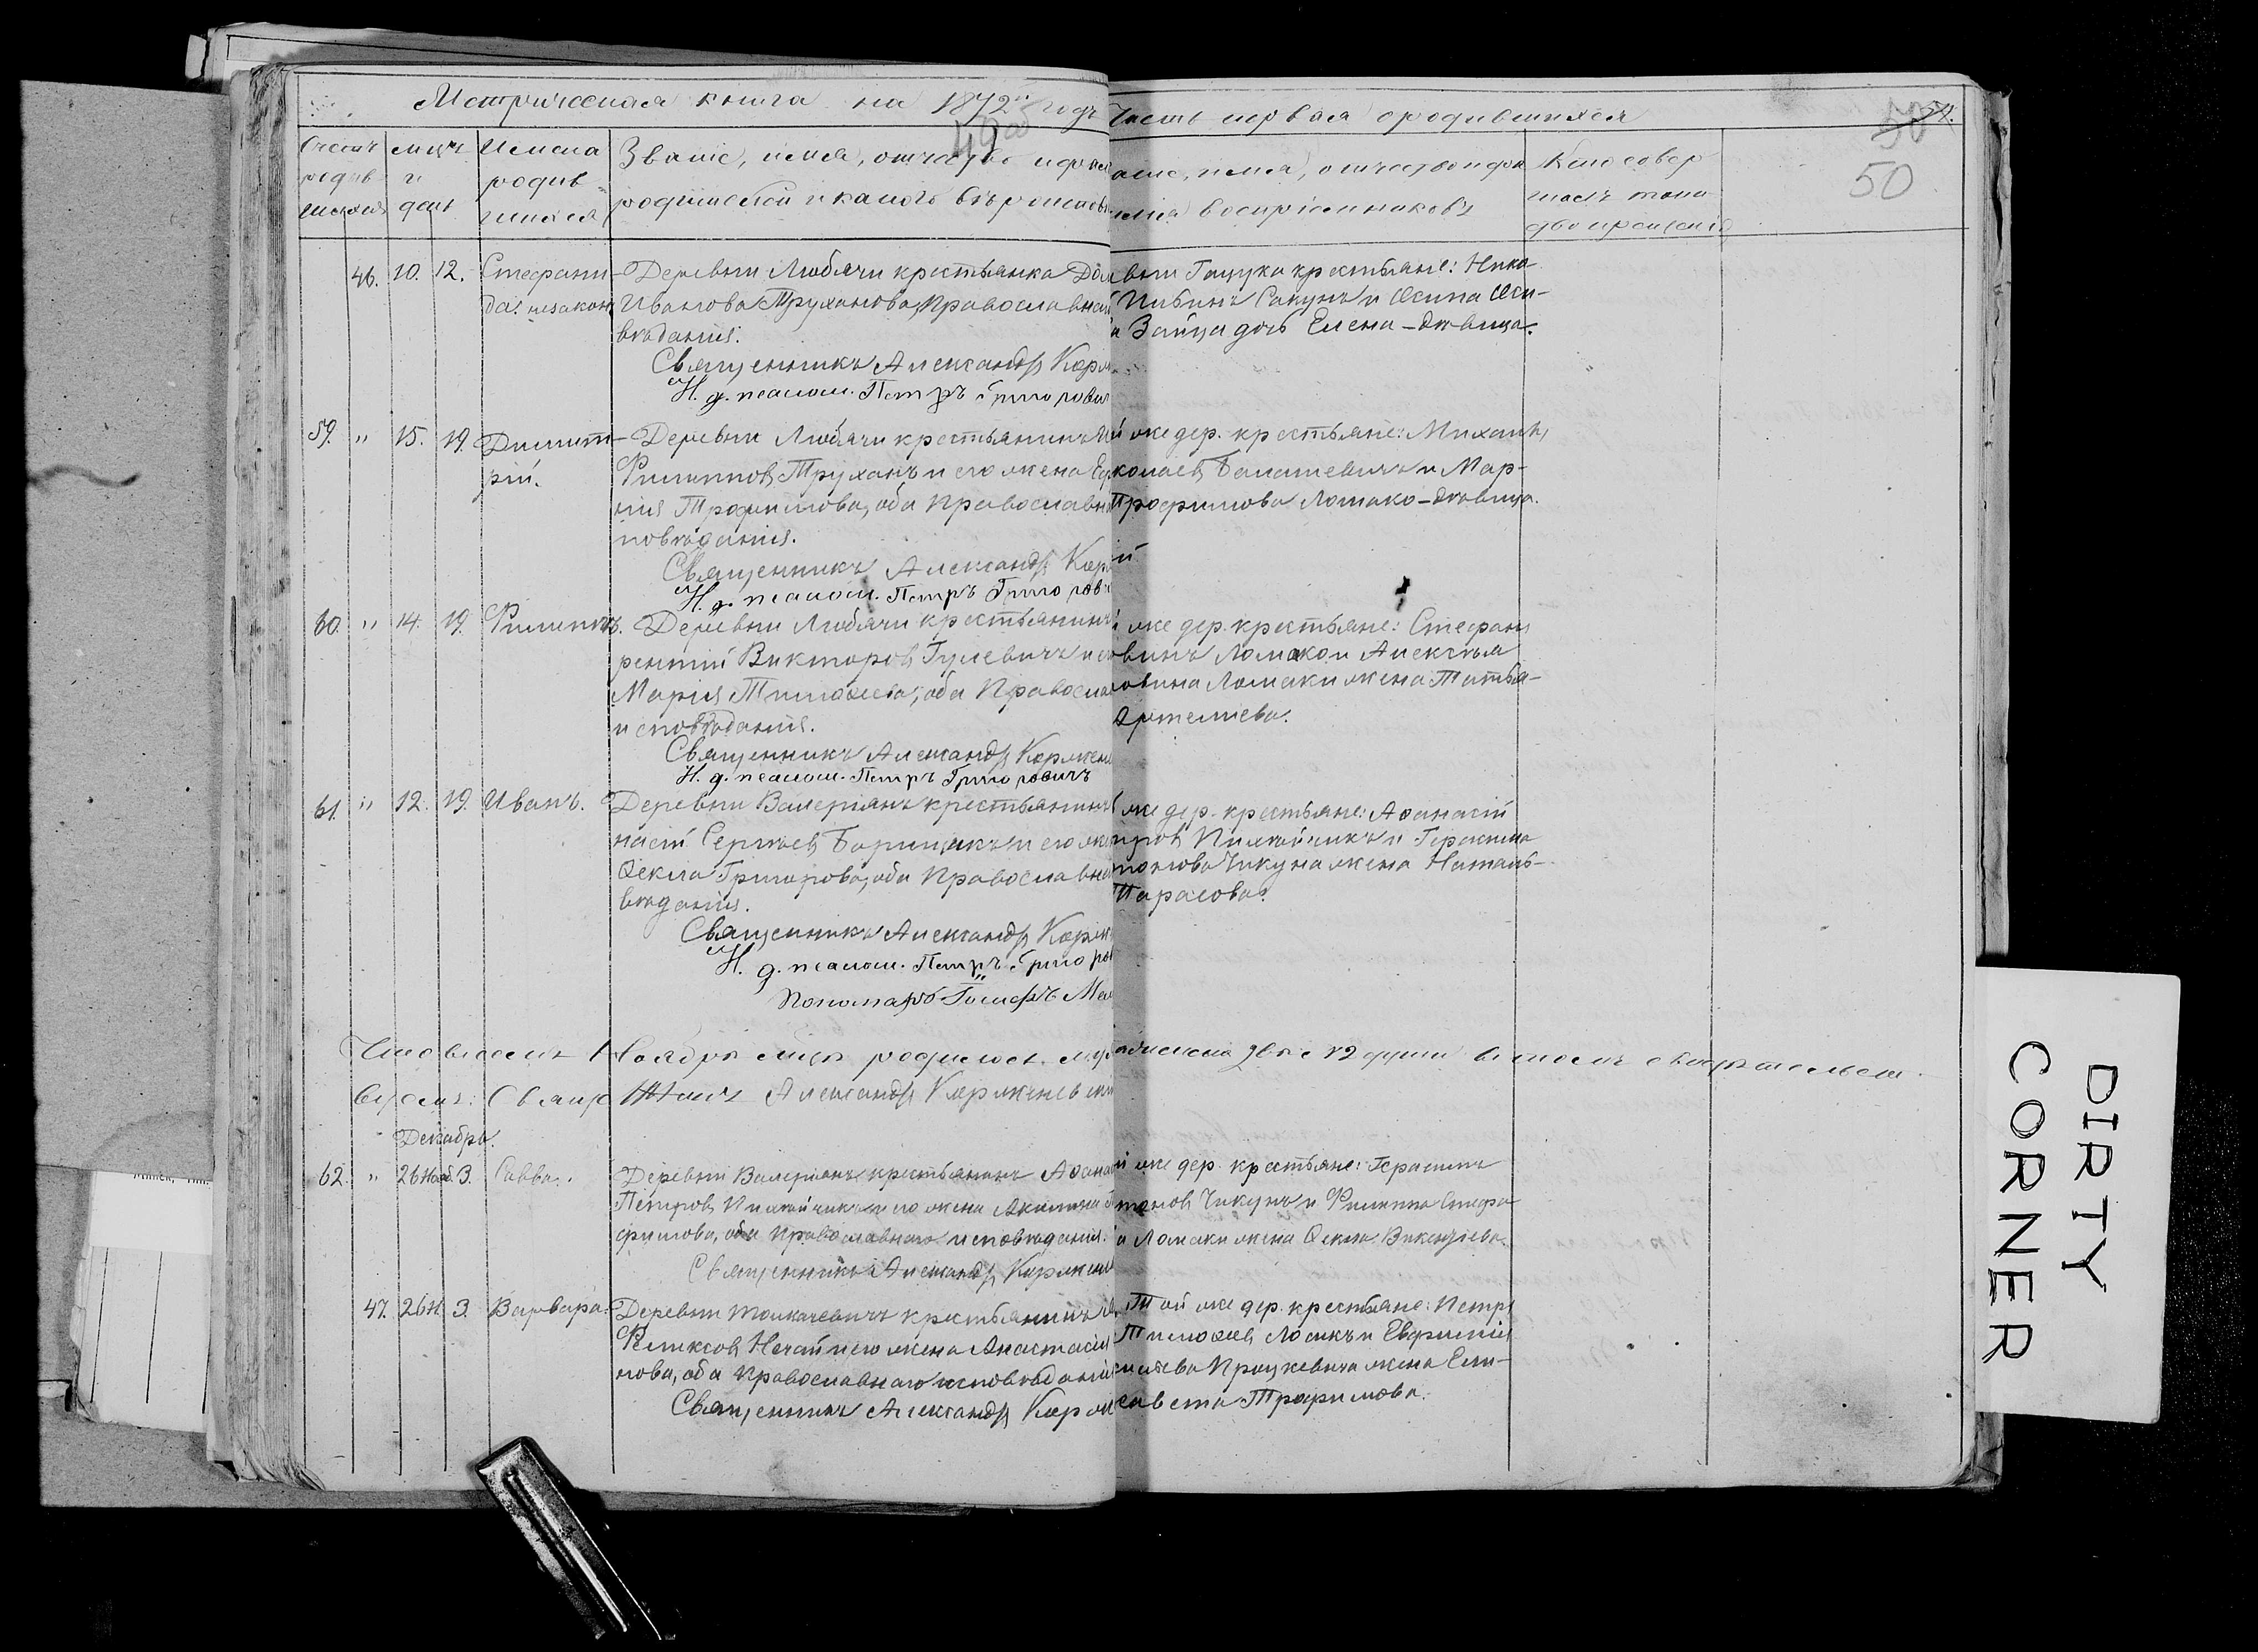 Метрическая книга на 1872й годъ
49 об
Часть первая о родившихся
50
Счетъ родив шихся
мѣсяцъ и день
Имена родив шихся
Званіе, имя, отчество и
родителей и какого вѣроисповѣ
аніе, имя, отчество и фа
милія воспріемниковъ
Кто совер
шалъ таин
ство крещенія
46. 10. 12. Стефани- Деревни Любячи крестьянка
да: незакон Иванова Труханова, Православнаго
вѣданія.
Священникъ Александръ Корж
И. д. псалом. Петръ Григорович
вни Гацука крестьяне: Нико
Сакунъ и Осипа Оси-
а Зайца дочь Елена - дѣвица.
59. " 15. 19. Димит- Деревни Любячи крестьянинъ
рій. Филиппов Труханъ и его жена
нія Трофимова, оба Православнаго
повѣданія.
Священникъ Александръ Кор
И. д. псалом. Петръ Григорови
й же дер. крестьяне: Михаилъ
колаев Балашевичъ и Мар-
Трофимова Ломако - дѣвица.
60. " 14. 19. Филиппъ. Деревни Любячи крестьянинъ
рентій Викторов Гулевичъ и его
Марія Тимофеева, оба Правосла
исповѣданія.
Священникъ Александръ Коржен
И. д. псалом. Петръ Григоровичъ
й же дер. крестьяне: Стефанъ
Ломако и Алексѣя
Ломаки жена Татья-
Артемьева.
61. " 12. 19. Иванъ. Деревни Валеріянъ крестьянинъ
насій Сергѣев и его жена
Ѳекла Григорова, оба Православна
вѣданія.
Священникъ Александръ Корж
И. д. псалом. Петръ Григоров
Пономарь Іосифъ
же дер. крестьяне: Аѳанасій
Петров и Герасима
Чикуна жена Наталь-
Тарасова.
Что всего въ Ноябрѣ мѣсяцѣ родилось 12 душъ въ томъ свидѣтельст-
вуемъ: Священникъ Александръ Корженевски
Декабрь.
62. " 26 Нояб. 3. Савва. Деревни Валеріянъ крестьянинъ Аѳанас
Петров и его жена Акилина
фимова, оба Православнаго исповѣданія.
Священникъ Александръ Коржен
й же дер. крестьяне: Герасимъ
Чикунъ и Филиппа Стефа
а Ломаки жена Ѳекла Викентіева.
47. 26 Н. 3. Варвара. Деревни Толкачевичъ крестьянинъ
Феликсов Нечай и его жена Анастасія
нова, оба Православнаго исповѣданія
Священникъ Александръ Корж
Той же дер. крестьяне: Петръ
Тимоѳеев и Евфимія
Процкевича жена Ели-
савета Трофимова.
DIRTY
CORNER